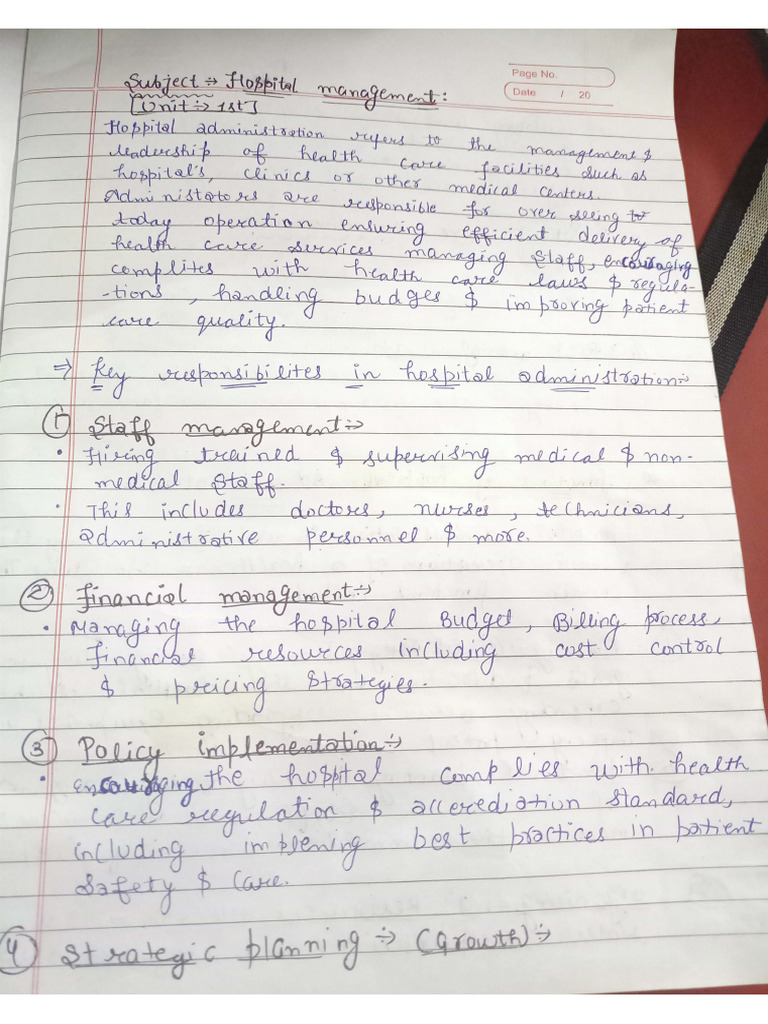 Page No.
Date / 20
Subject :→ Hospital management :
[Unit :→ 1st]
Hospital administration refers to the management &
leadership of health care facilities such as
hospital's, clinics or other medical centers.
Administators are responsible for over seeing to
today operation ensuring efficient delivery of
health care services managing staff, encouraging
complites with health care laws & regula-
-tions, handling budges & improving patient
care quality.
⇒ Key responsibilites in hospital administration :-
① Staff management :-
• Hiring trained & supervising medical & non-
medical staff.
• This includes doctors, nurses, technicians,
administrative personnel & more.
② financial management :-
• Managing the hospital Budget, Billing process,
financial resources including cost control
& pricing strategies.
③ Policy implementation :-
• encouraging the hospital complies with health
care regulation & accrediation standard,
including implening best practices in patient
safety & care.
④ Strategic planning :- (Growth) :-